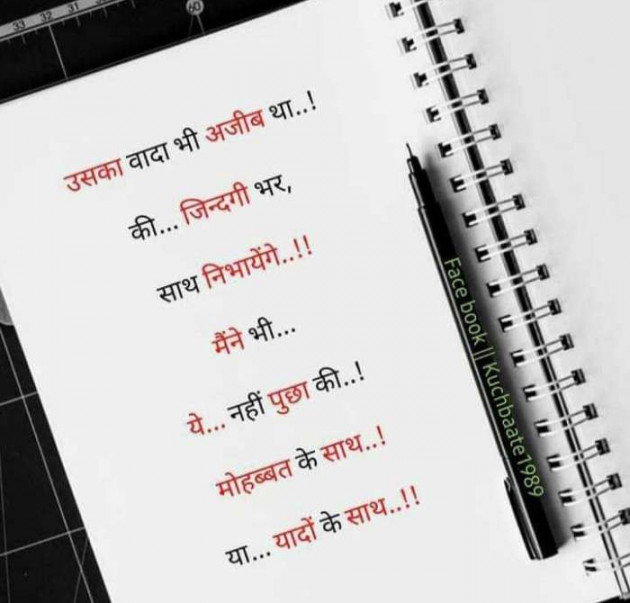 33 32 31
60
उसका वादा भी अजीब था..!
की... जिन्दगी भर,
साथ निभायेंगे..!!
मैंने भी...
ये... नहीं पुछा की..!
मोहब्बत के साथ..!
या... यादों के साथ..!!
Face book || Kuchbaate1989